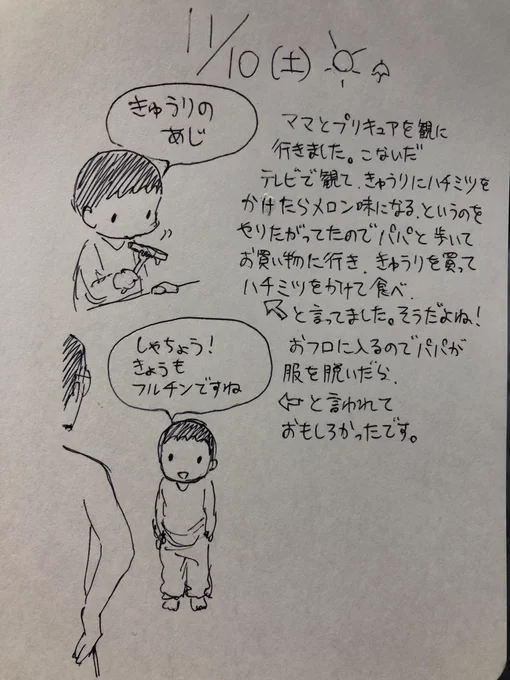 11/10(土)
きゅうりの
あじ
ママとプリキュアを観に
行きました。こないだ
テレビで観て、きゅうりにハチミツを
かけたらメロン味になる、というのを
やりたがってたのでパパと歩いて
お買い物に行き、きゅうりを買って
ハチミツをかけて食べ、
と言ってました。そうだよね!
おフロに入るのでパパが
服を脱いだら、
と言われて
おもしろかったです。
しゃちょう!
きょうも
フルチンですね